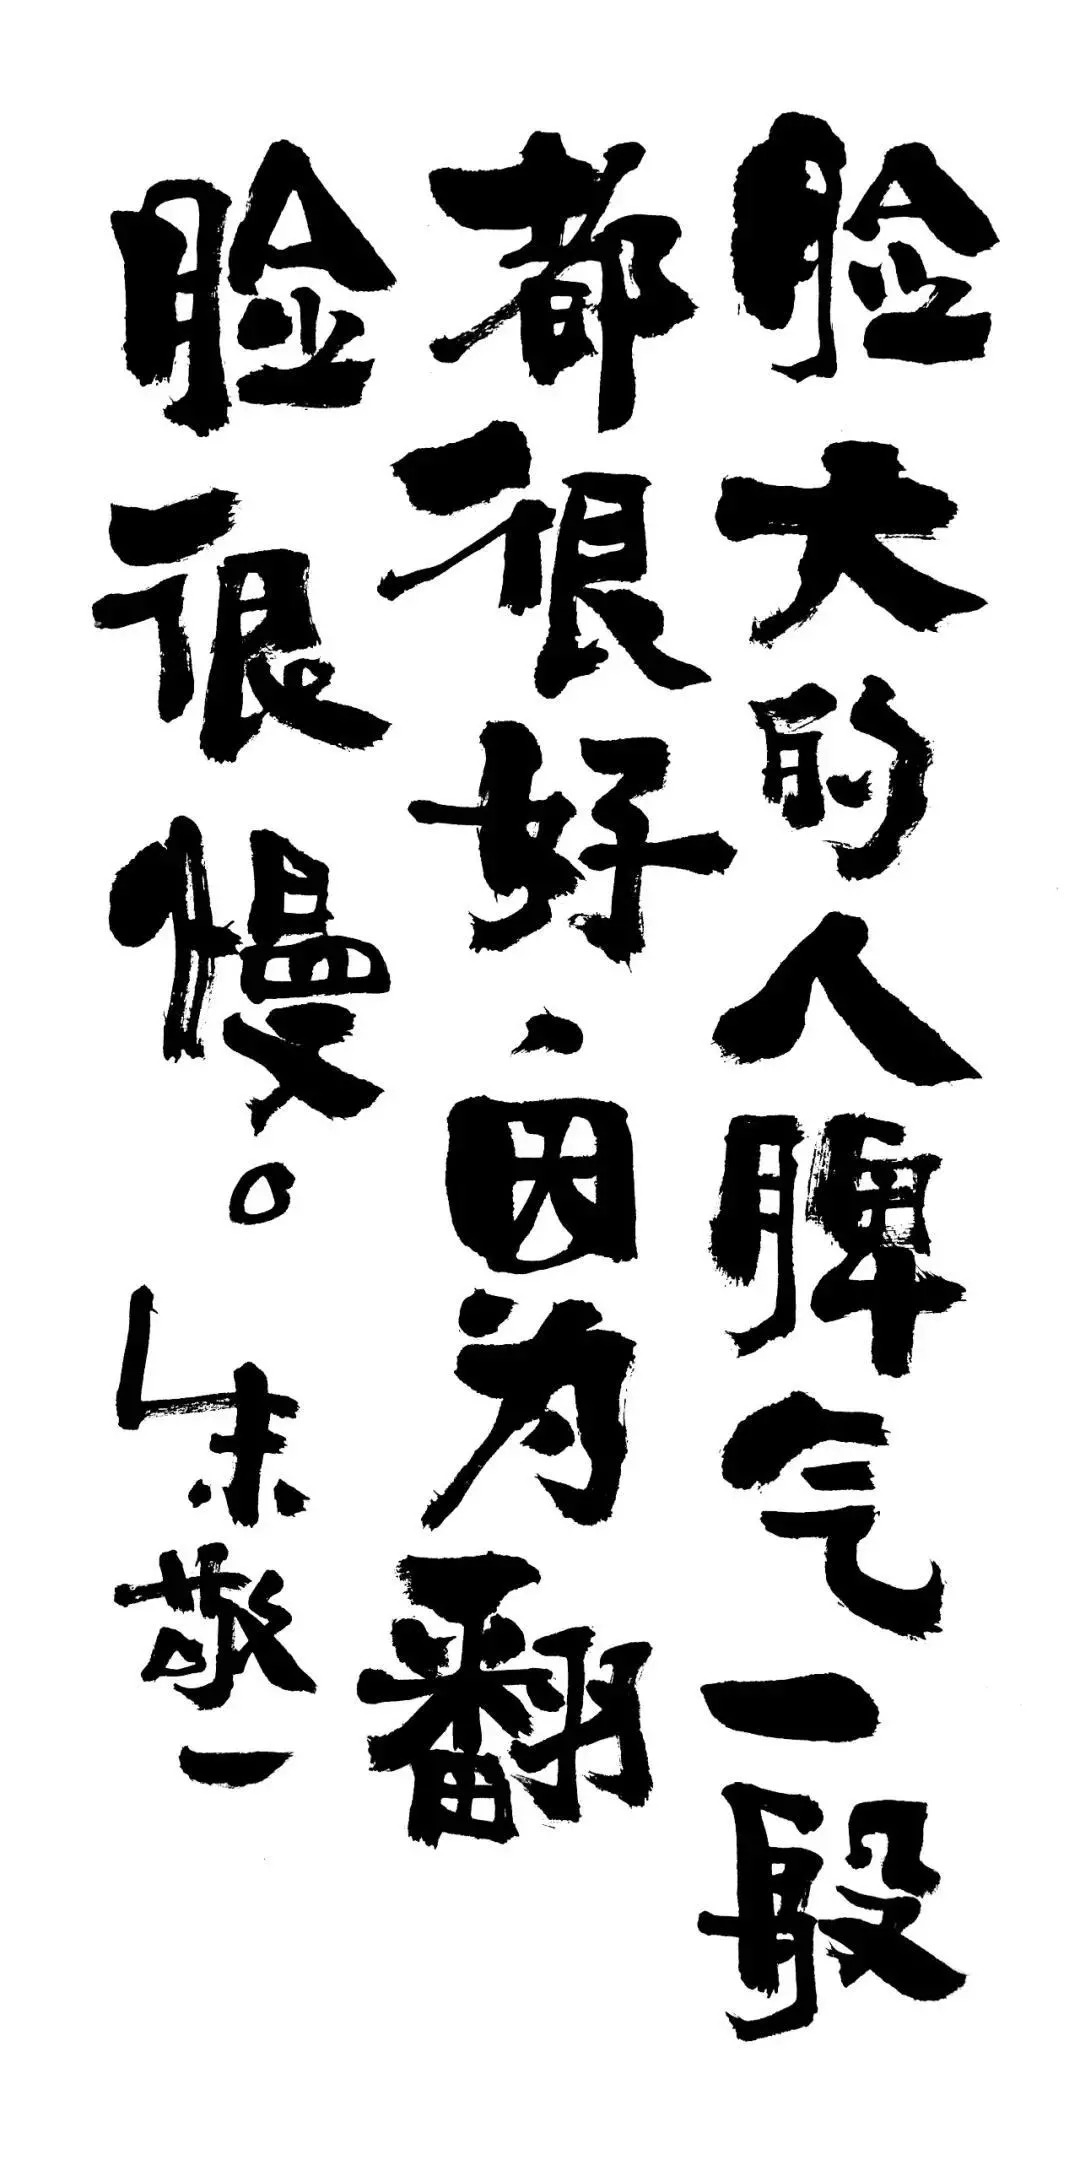 脸大的人脾气一般
都很好，因为翻
脸很慢。朱敬一